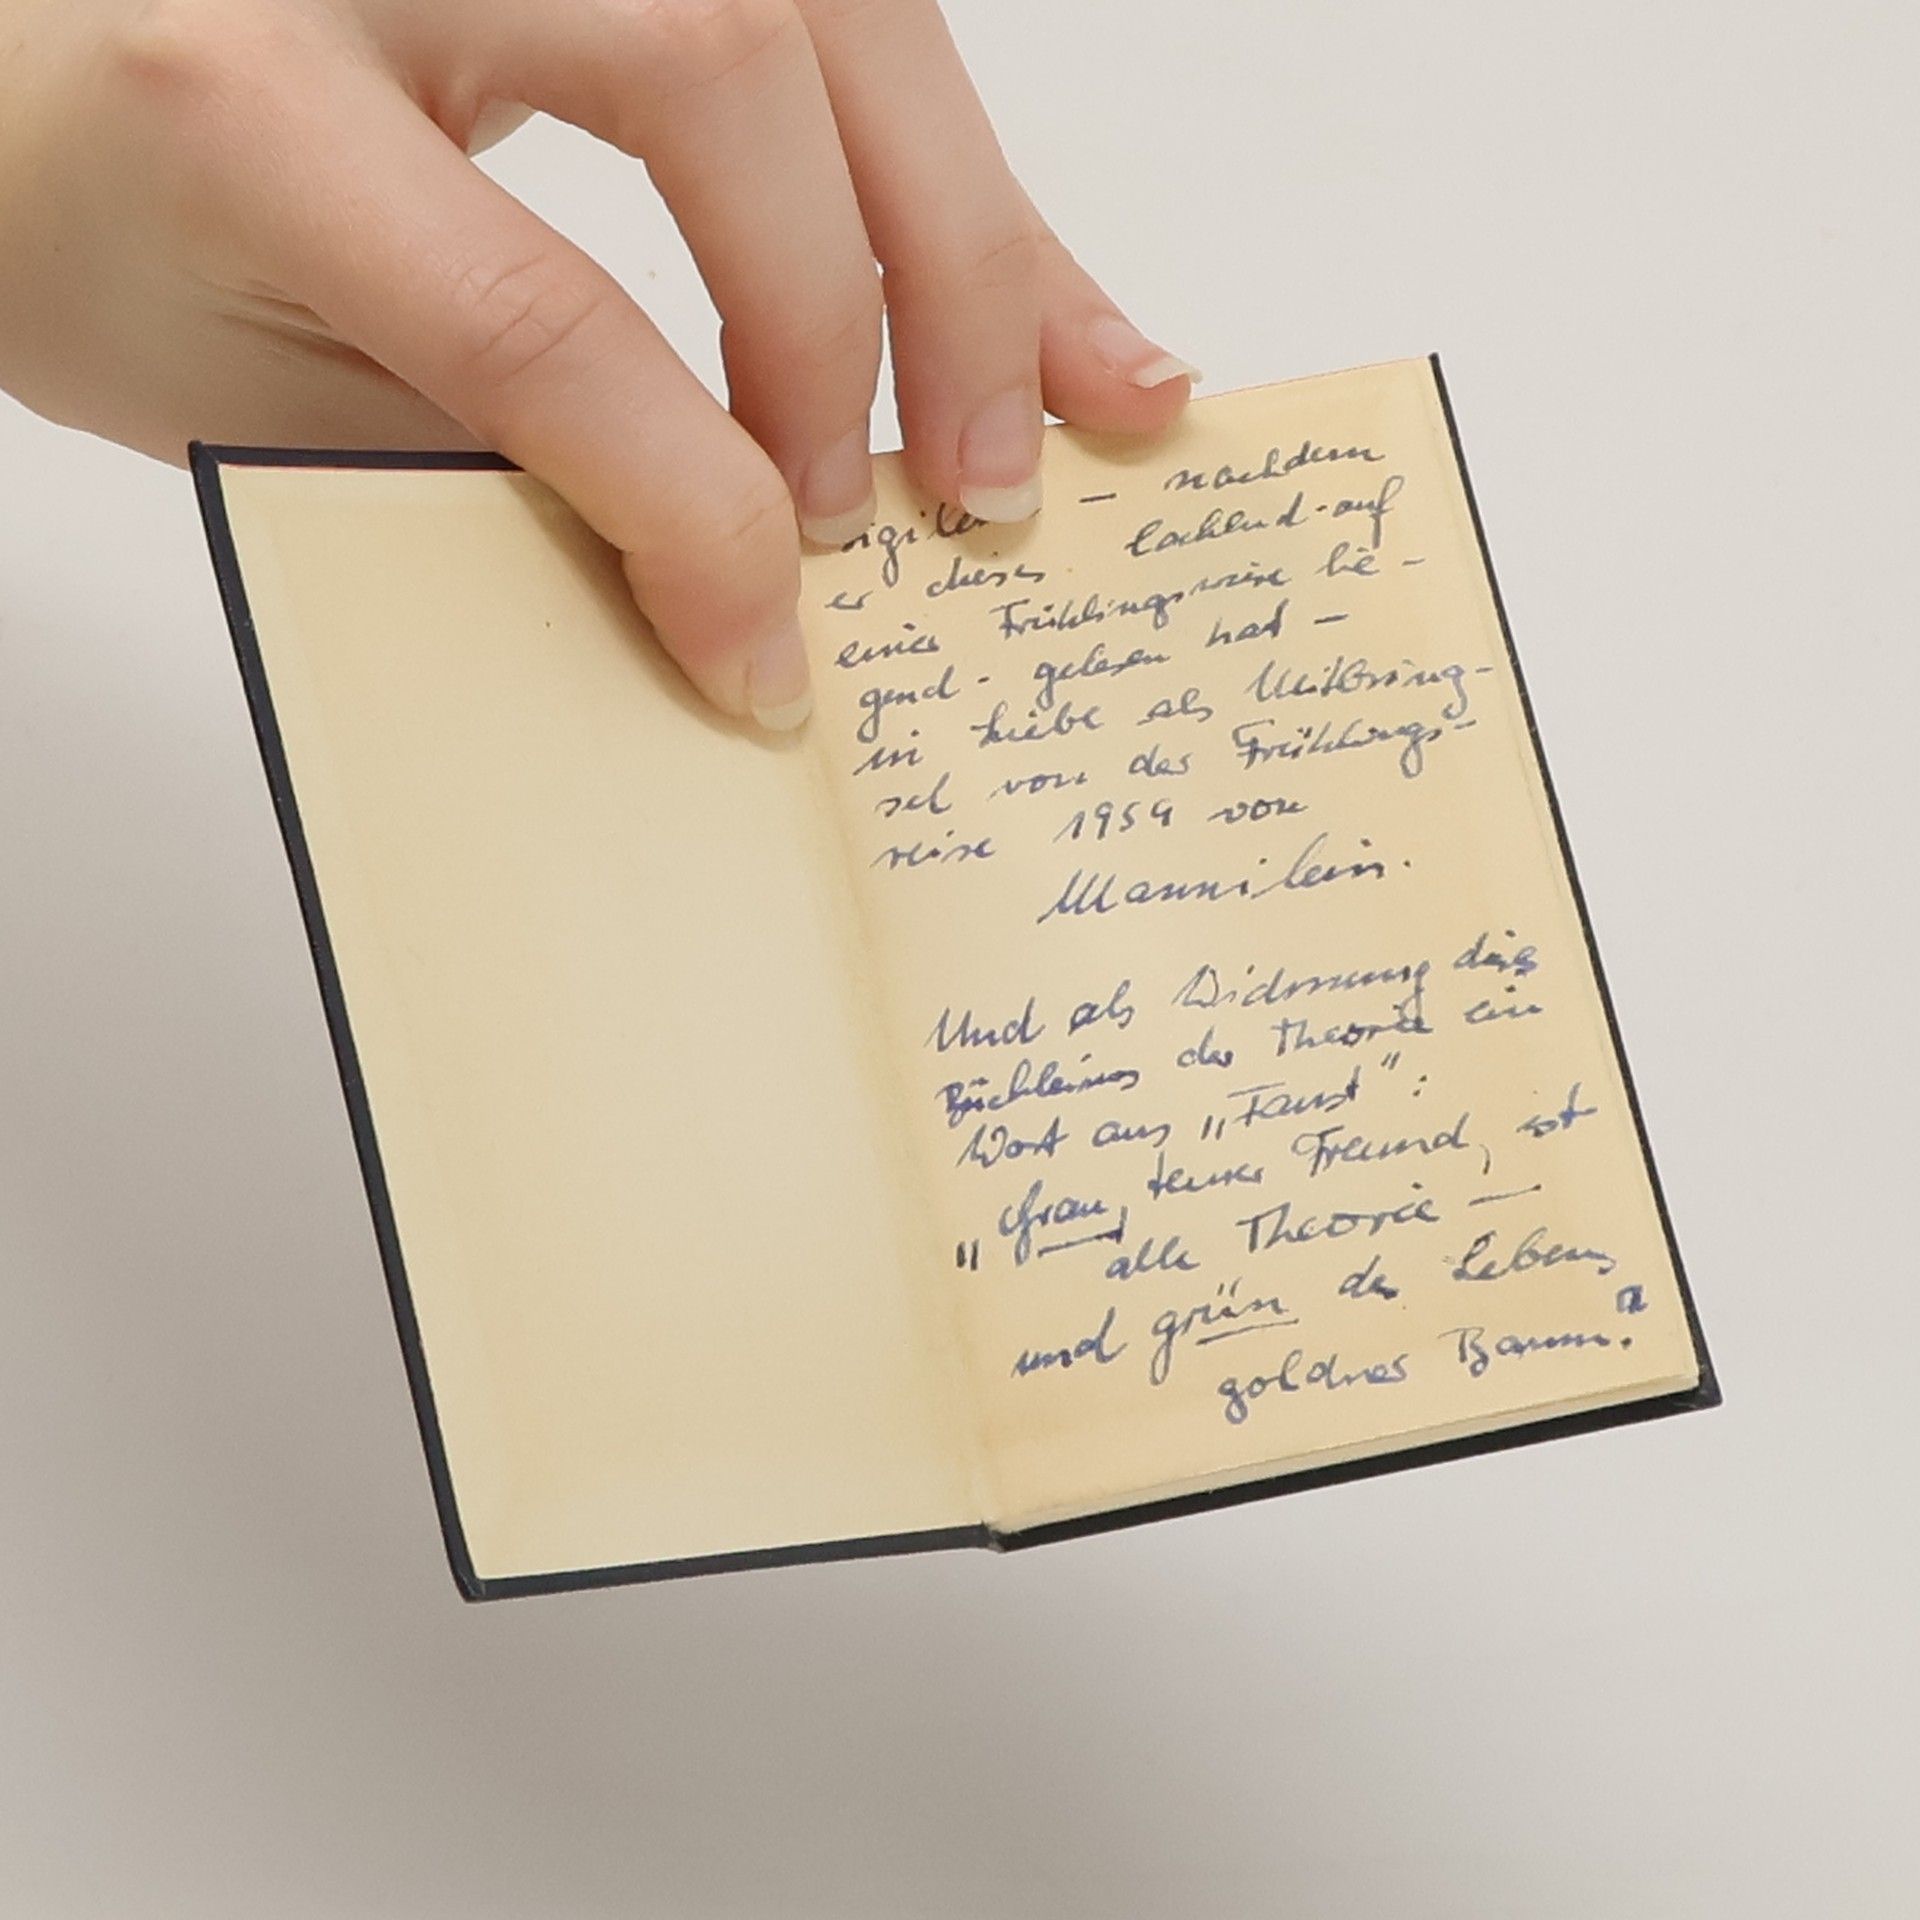 — nachdem
er dieses lachend - auf
einer Frühlingswiese lie-
gend - gelesen hat -
in Liebe als Mitbring-
sel von der Frühlings-
reise 1959 von
Mannilein.
Und als Widmung dieses
Büchleins der Theorie ein
Wort aus „Faust":
„Grau, teurer Freund, ist
alle Theorie —
und grün des Lebens
goldner Baum."